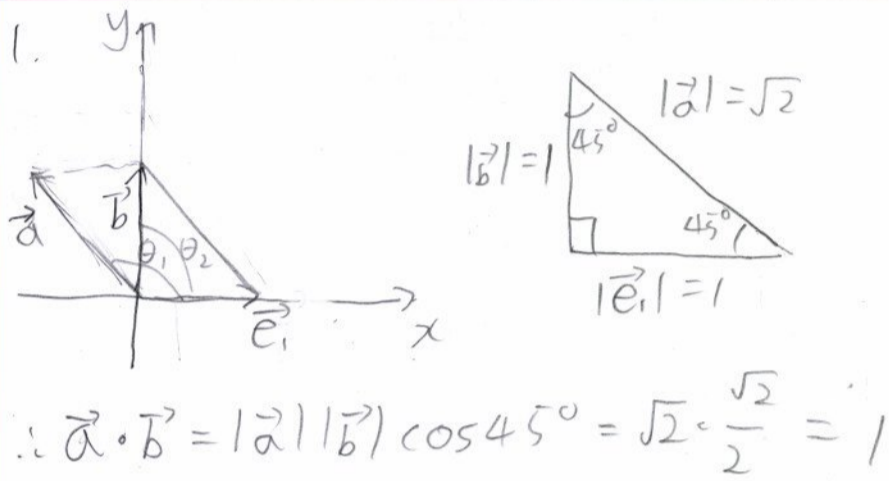 1.
y
a⃗
b⃗
θ₁ θ₂
e⃗₁
x
|a⃗| = √2
|b⃗| = 1
45°
45°
|e⃗₁| = 1
∴ a⃗ · b⃗ = |a⃗| |b⃗| cos45° = √2 · √2/2 = 1